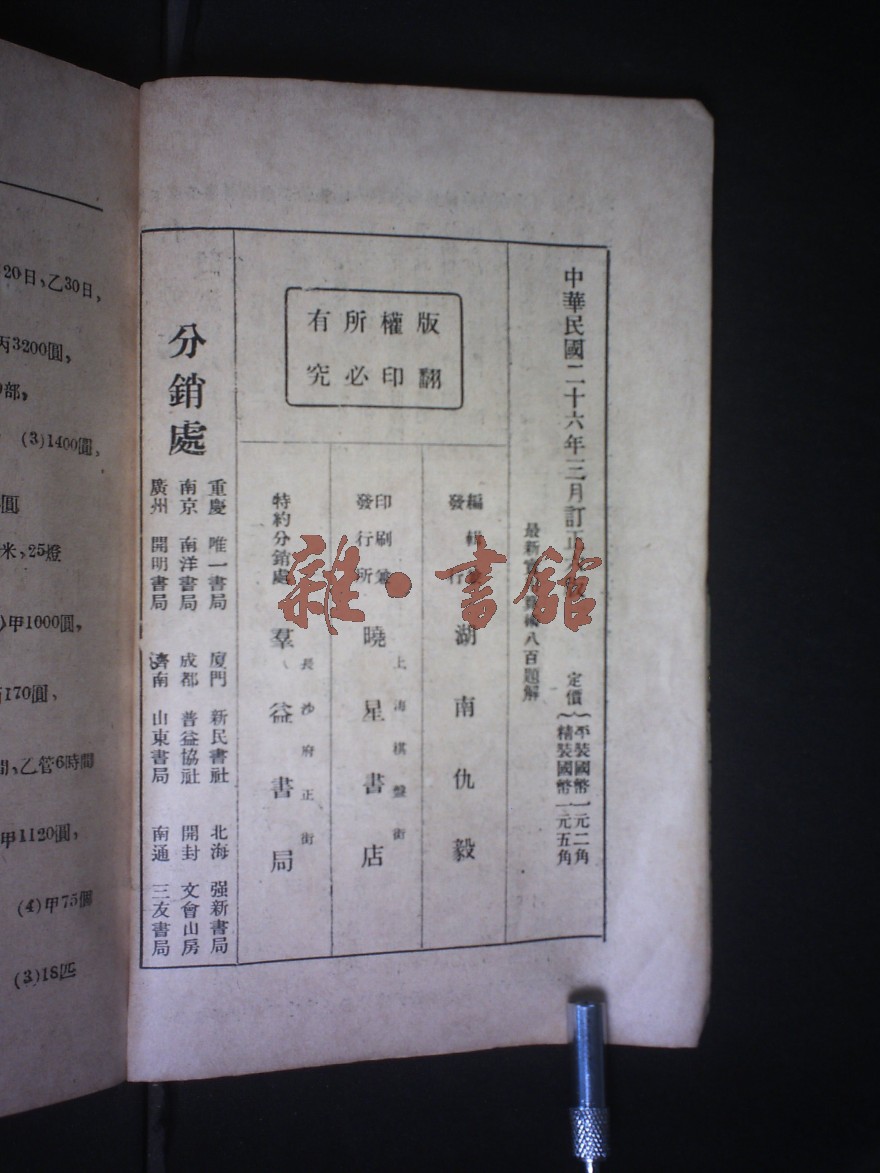 中華民國二十六年三月訂正
定價
平裝國幣一元二角
精裝國幣一元五角
最新
八百題解
版權所有
翻印必究
編輯兼
發行
湖南仇毅
印刷兼
發行所
上海棋盤街
曉星書店
特約分銷處
長沙府正街
羣益書局
分銷處
重慶 唯一書局 厦門 新民書社 北海 强新書局
南京 南洋書局 成都 普益協社 開封 文會山房
廣州 開明書局 濟南 山東書局 南通 三友書局
雜·書館
20日,乙30日,
丙3200圓,
部,
(3)1400圓,
圓
米,25燈
甲1000圓,
170圓,
間,乙管6時間
甲1120圓,
(4)甲75個
(3)18匹